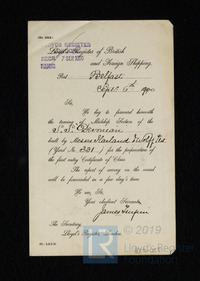 Lloyd's Register of British
and Foreign Shipping.
Port Belfast,
Sept 5th 1900
Sir,
We beg to forward herewith
the tracing of Midship Section of the
S.S. Devonian
built by Messrs Harland & Wolff Ltd
(Yard No. 331) for the preparation of
the first entry Certificate of Class.
The report of survey on the vessel
will be forwarded in a few day's time.
We are, Sir,
Your obedient Servants,
The Secretary,
Lloyd's Register, London.
© 2019
Lloyd's Register
Foundation